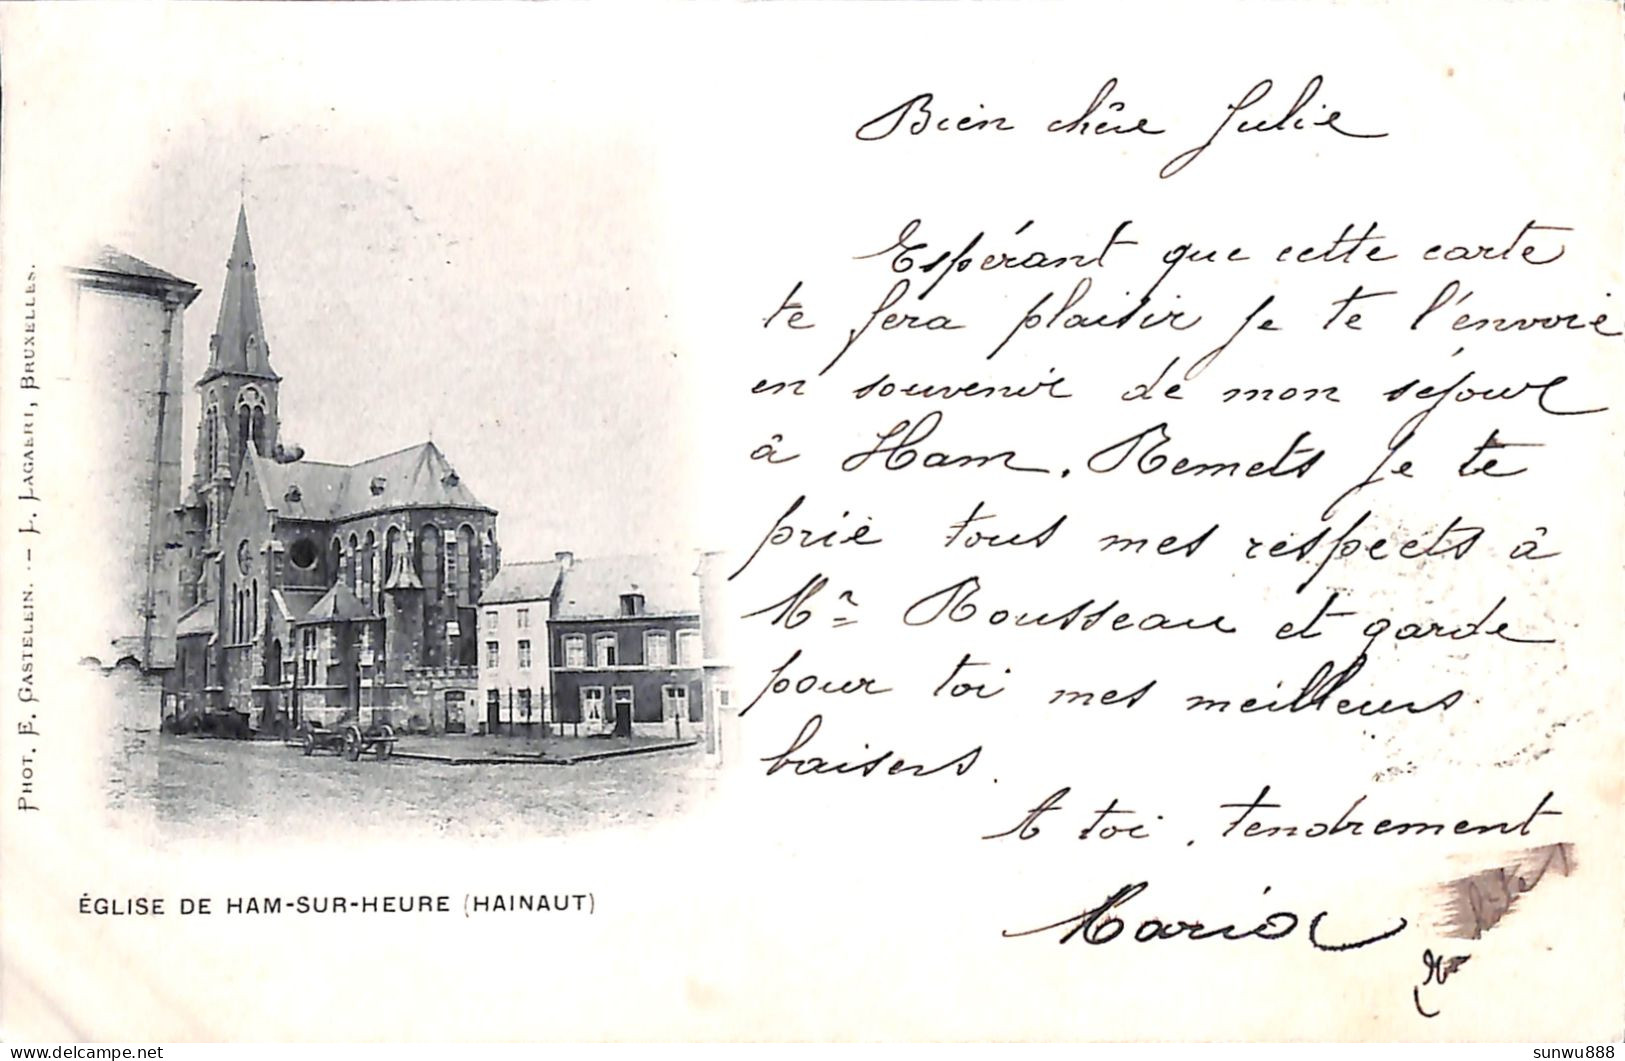 Bien chère Julie
Espérant que cette carte
te fera plaisir je te l'envoie
en souvenir de mon séjour
à Ham. Remets je te
prie tous mes respects à
Mr Rousseau et garde
pour toi mes meilleurs
baisers.
A toi, tendrement
PHOT. E. CASTELEIN. -- J. LAGAERT, BRUXELLES.
ÉGLISE DE HAM-SUR-HEURE (HAINAUT)
sunwu888